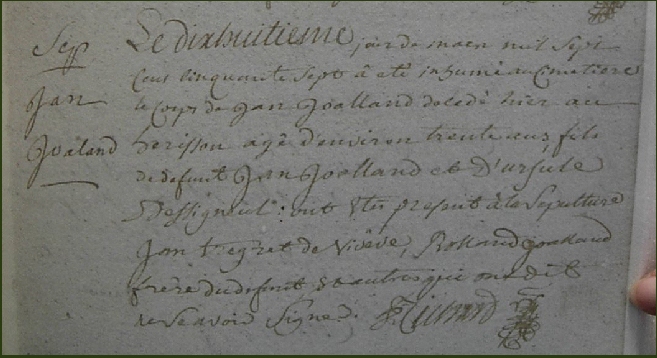 Sep
Jan
Joaland
Le dixhuitiesme jour de mars mil Sept
Cens cinquante Sept â etê inhumê au Cimetiere
le Corps de Jan Joalland decedê hier au
herisson agê d'environ trente ans, fils
de defunt Jan Joalland et D'ursule
ont êtes present â la Sepulture
Jan de Rolland joalland
frere du defunt & autres qui ont dit
ne Scavoir Signer.